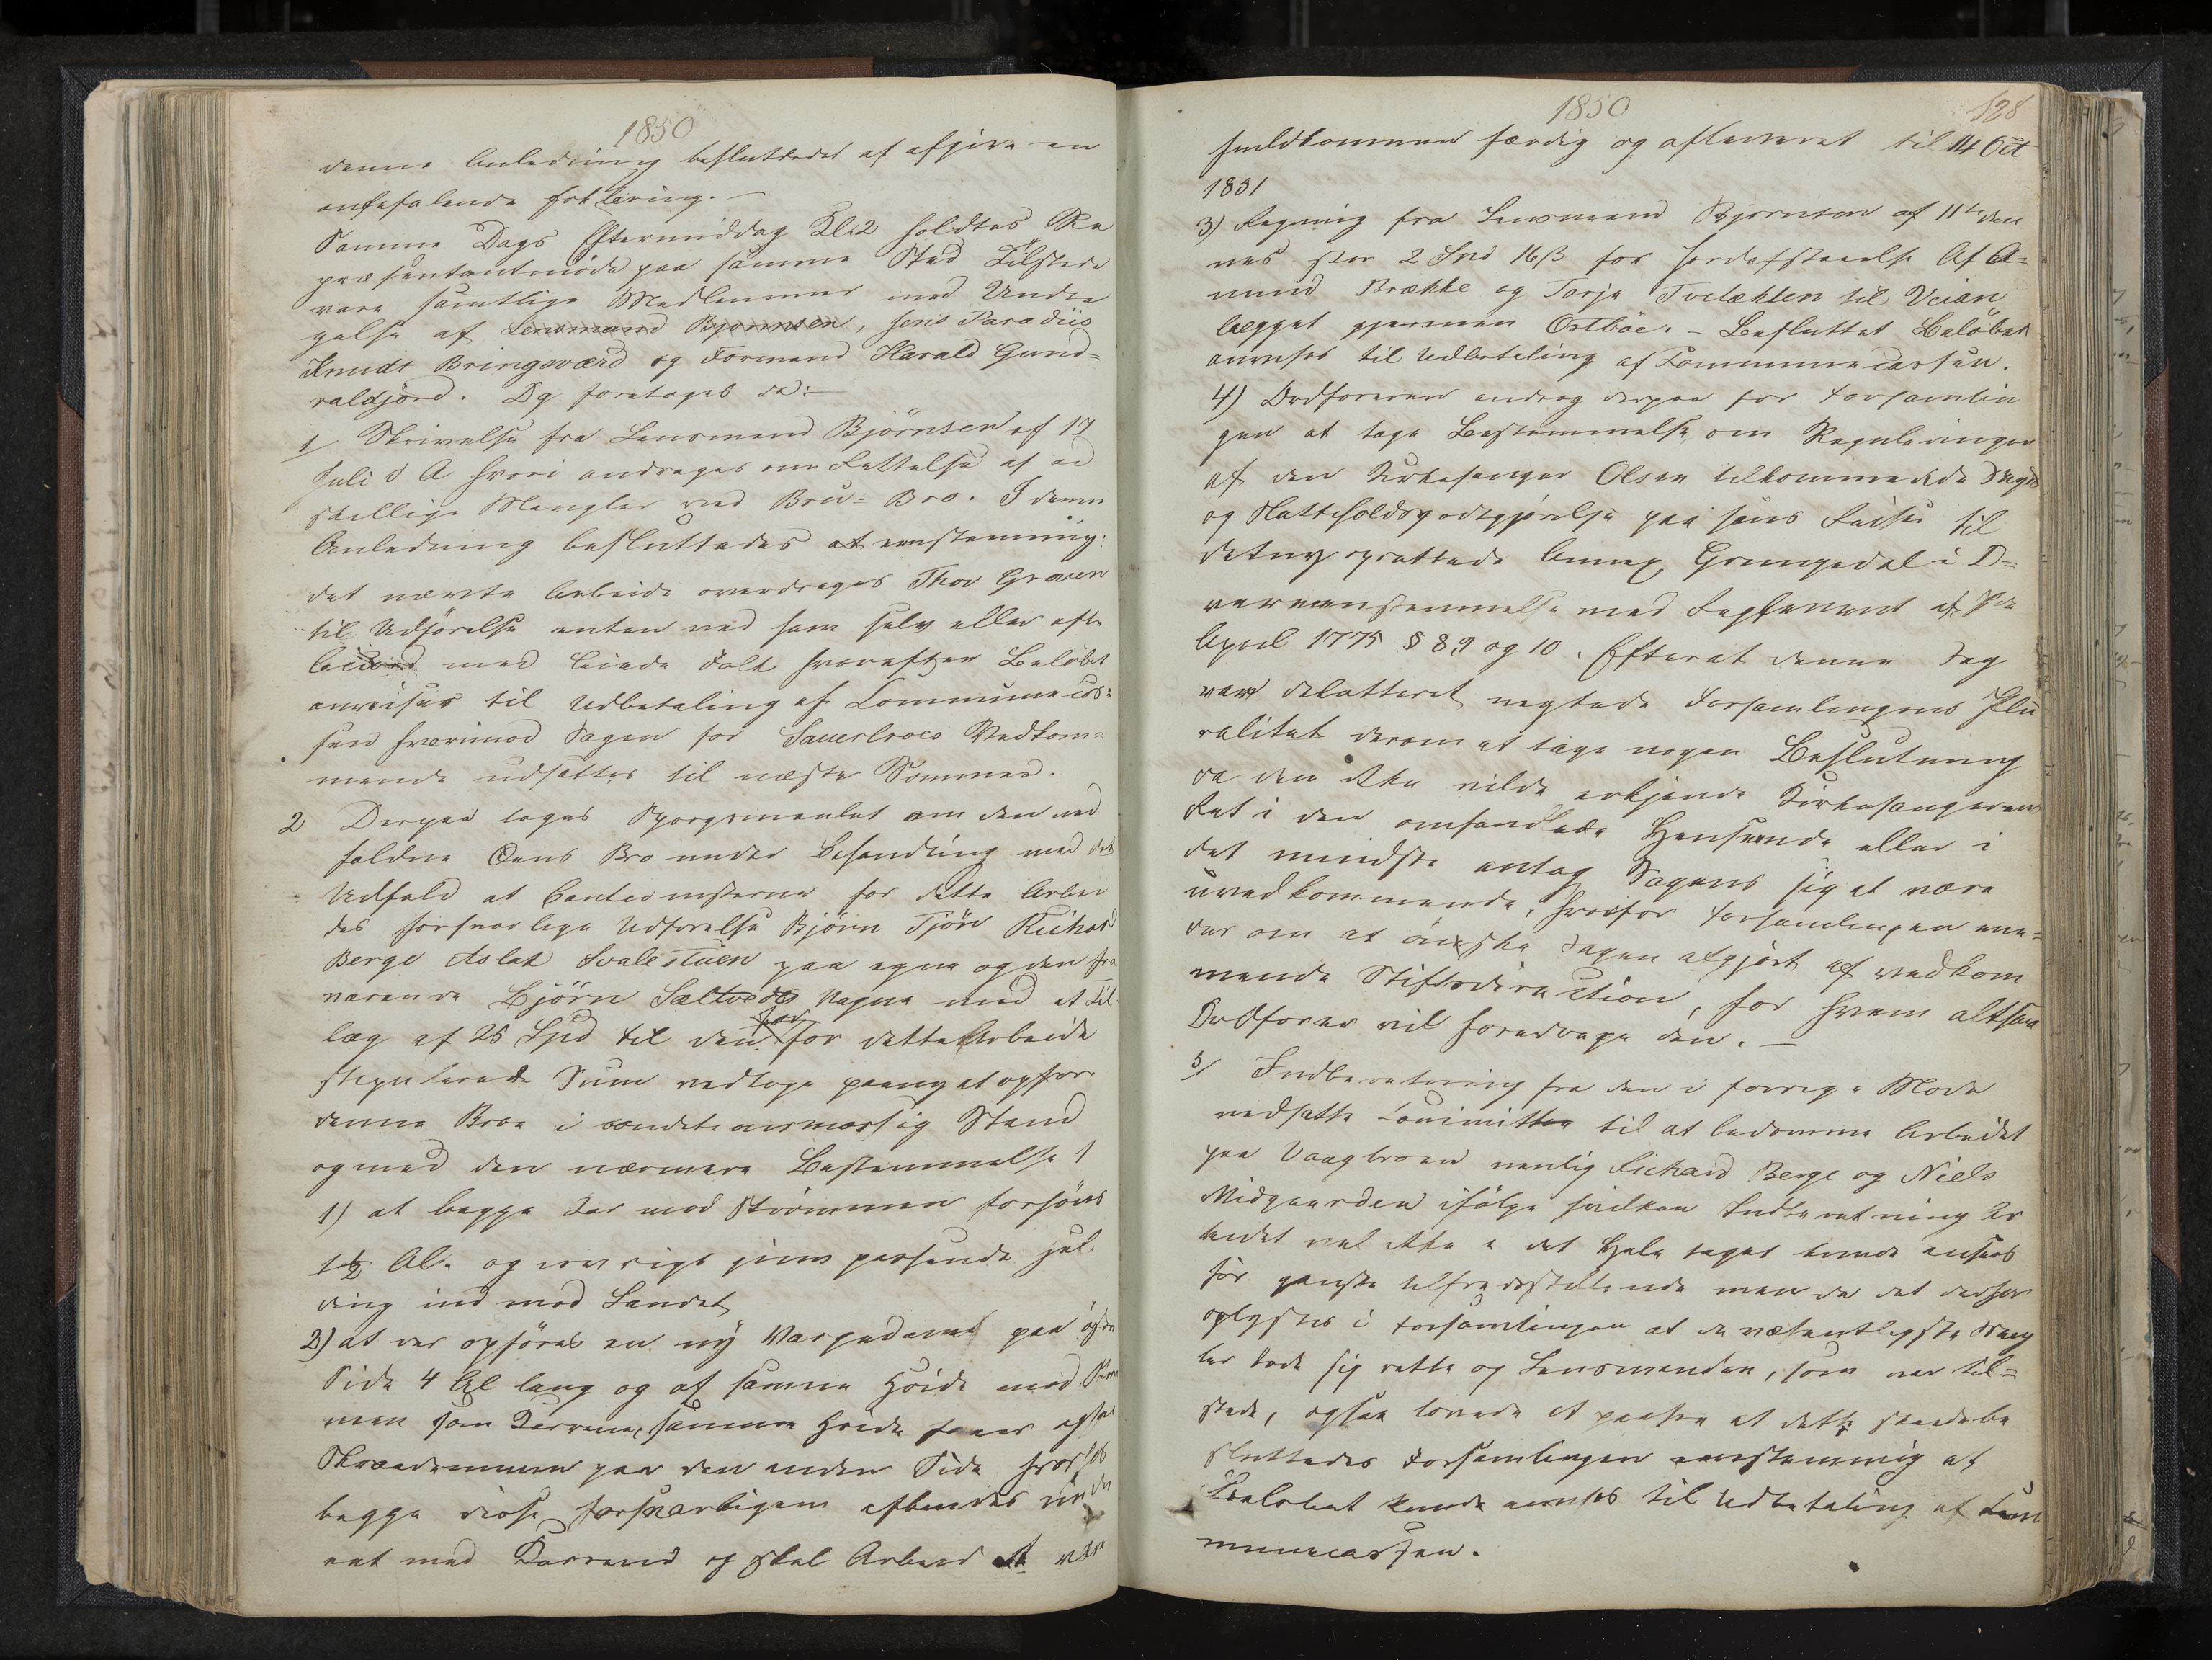 1850
denne Anledning besluttedes at afgive en
anbefalende Erklæring. —
Samme Dags Eftermiddag Kl: 2 holdtes Re
præsentantmøde paa samme Sted Tilstede
vare samtlige Medlemmer med Undta
gelse af Lensmand Bjørnsen, Jens Paradiis
Knudt Bringsværd og Formand Harald Gund=
raldjord. Og foretoges da:
1/ Skrivelse fra Lensmand Björnsen af 17
Juli d A hvori andrages om Rettelse af ad
skillige Mangler ved Bru-Bro. I denne
Anledning besluttedes at eenstemmig:
det nævnte Arbeide overdrages Thor Groven
til Udførelse enten ved ham selv eller
med leiede Folk hvorefter Beløbet
anvises til Udbetaling af Communecas=
sen hvorimod Sagen for Vedkom=
mende udsættes til næste Sommer.
2 Derpaa toges Spørgsmaalet om den ned
faldne Bro under Behandling med det
Udfald at Cautionisterne for dette Arbei
des forsvarlige Udførelse Björn Tjön Richard
Berge Aslak Svalestuen paa egne og den fra
værende Björn Sæltveds Vegne mod et Til
læg af 25 Spd til den for dette Arbeide
stipulerede Sum vedtoge paany at opføre
denne Broe i conditionsmæssig Stand
og med den nærmere Bestemmelse 1
1) at begge Kar mod Strömmen forhöies
1½ Al. og iøvrigt gives passende Hæl
ding ind mod Landet
2) at der opföres en ny paa
Side 4 Al lang og af samme Höide med
men som Karrene, samme Höide faaer ogsaa
paa den anden Side
begge disse forsvarligen
med Karrene og skal Arbeidet være
1850
128
fuldkommen færdig og afleveret til 14 Oct
1851
3) Regning fra Lensmand Bjørnsen af 11te den
nes stor 2 Spd 16 ß for Jordafstaaelse af A=
mund Brække og Tarje Tveitakten til Veian
lægget gjennem Ostböe. – Besluttet Belöbet
anvises til Udbetaling af Communecassen.
4) Ordføreren androg derpaa for Forsamlin
gen at tage Bestemmelse om Reguleringen
af den Kirkesanger Olsen tilkommende Skyds
og Natteholdsgodtgjørelse paa hans Reiser til
det ny oprettede Annex Grungedal i O=
vereensstemmelse med Reglement af
April 1775 § 89 og 10. Efterat denne Sag
var debatteret negtede Forsamlingens Plu
ralitet derom at tage nogen Beslutning
da den ikke vilde erkjende Kirkesangerens
Ret i den omhandlede Henseende eller i
det mindste antog Sagens sig at være
uvedkommende, hvorfor Forsamlingen
om at önske Sagen afgjört af vedkom
mende Stiftsdirection, for hvem altsaa
Ordfører vil foredrage den. —
5/ Indberetning fra den i forrige Møde
nedsatte Committee til at bedømme Arbeidet
paa Vaagbroen nemlig Richard Berge og Niels
Midgaarden ifölge hvilken Indberetning Ar
beidet vel ikke i det Hele taget kunde ansees
for ganske tilfredsstillende men da det
oplystes i Forsamlingen at de væsentligste Mang
ler lode sig rette og Lensmanden, som var til=
stede, ogsaa lovede at paasee at dette skeede be
sluttedes Forsamlingen eenstemmig at
Beløbet kunde anvises til Udbetaling af Com
munecassen.